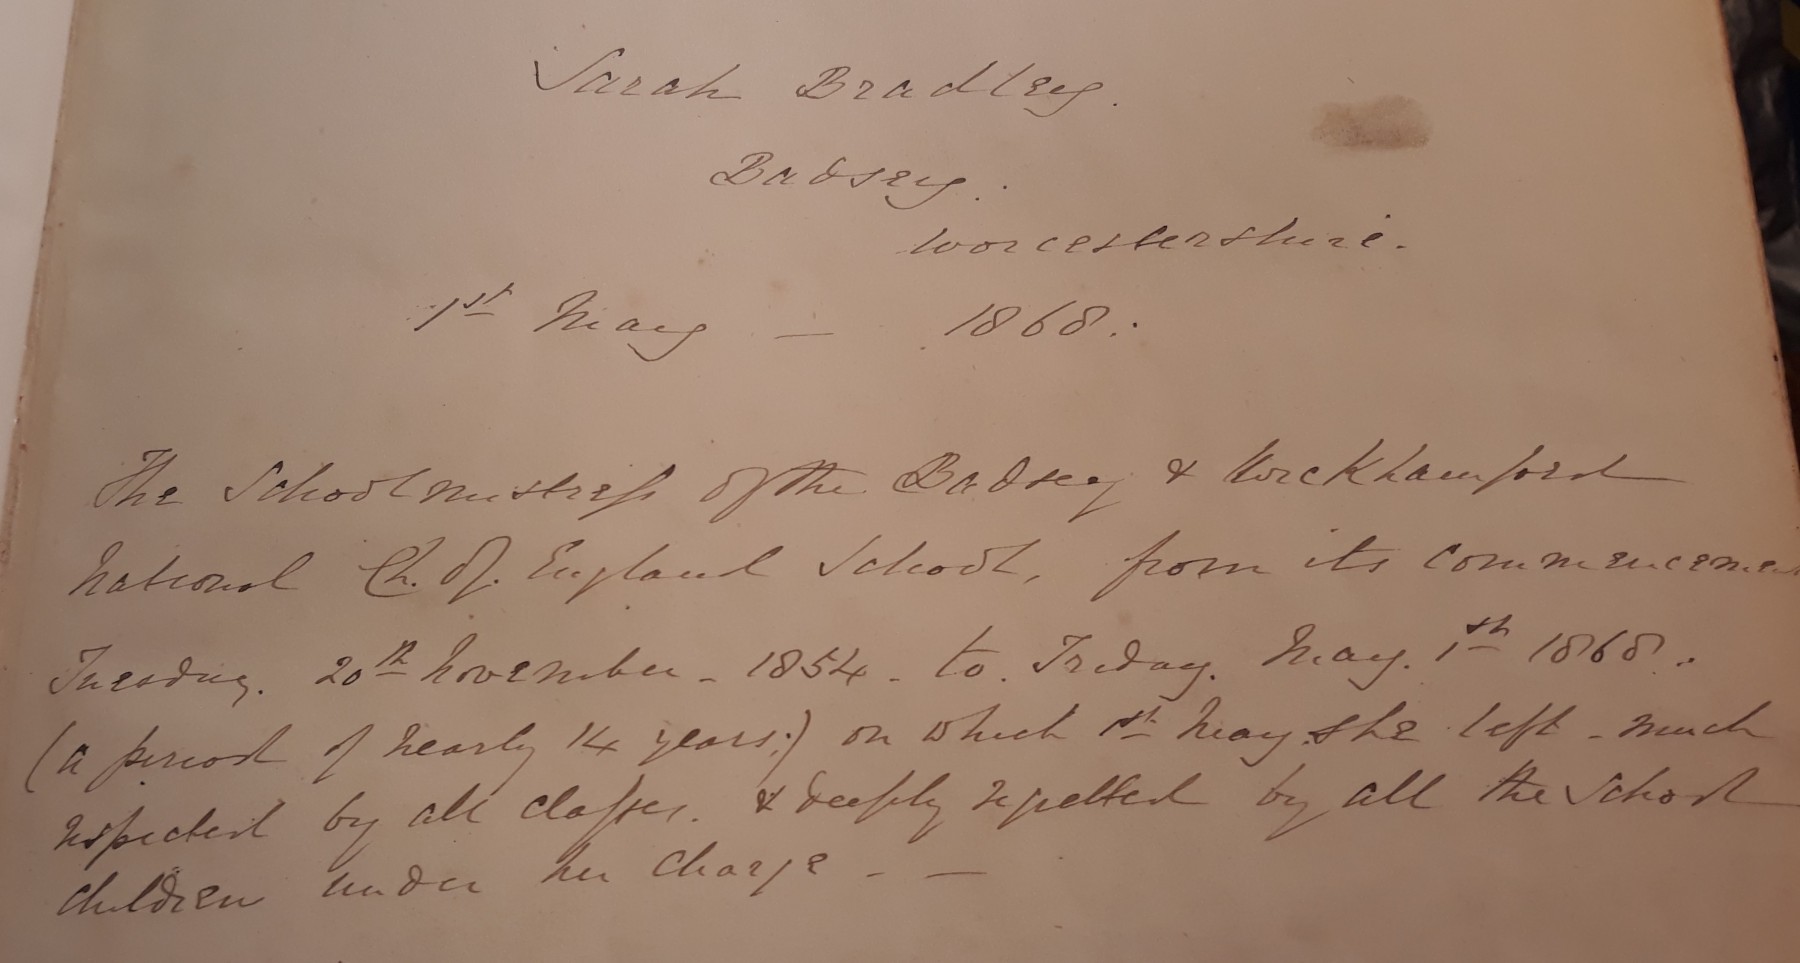 Sarah Bradley.
Badsey.
Worcestershire.
1st May — 1868.
The Schoolmistress of the Badsey & Wickhamford
National Ch. of. England School, from its commencemen
Tuesday. 20th November - 1854 - to. Friday. May. 1st 1868.
(a period of nearly 14 years;) on which 1st May she left - much
respected by all classes. & deeply regretted by all the School
children under her charge - —